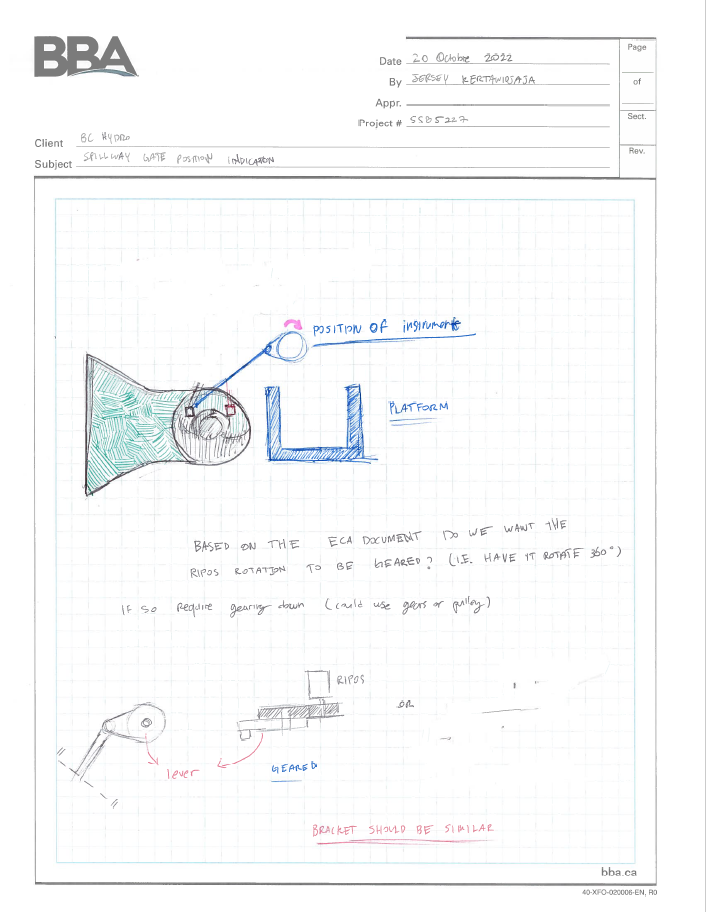 BBA
Page
Date 20 Octobre 2022
By JERSEY KERTAWIDJAJA
of
Appr.
Project # 5585227
Sect.
Client BC HYDRO
Rev.
Subject SPILLWAY GATE POSITION INDICATION
POSITION OF instruments
PLATFORM
BASED ON THE ECA DOCUMENT DO WE WANT THE
RIPOS ROTATION TO BE GEARED? (I.E. HAVE IT ROTATE 360°)
IF SO require gearing down (could use gears or pulley)
RIPOS
OR
lever
GEARED
BRACKET SHOULD BE SIMILAR
bba.ca
40-XFO-020006-EN, R0